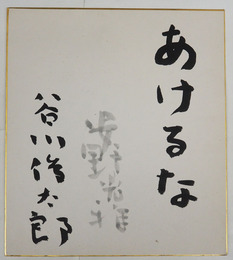 あけるな
谷川俊太郎